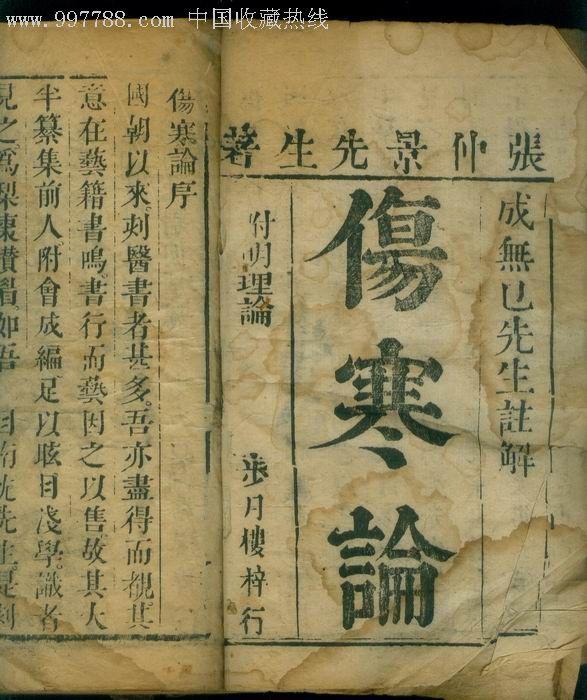 www.997788.com 中国收藏热线
張仲景先生著
成無已先生註解
傷寒論
附明理論
步月樓梓行
傷寒論序
國朝以來刻醫書者甚多吾亦盡得而覩其
意在藝籍書鳴書行而藝因之以售故其大
半纂集前人附會成編足以眩目淺學識者
見之爲梨棗